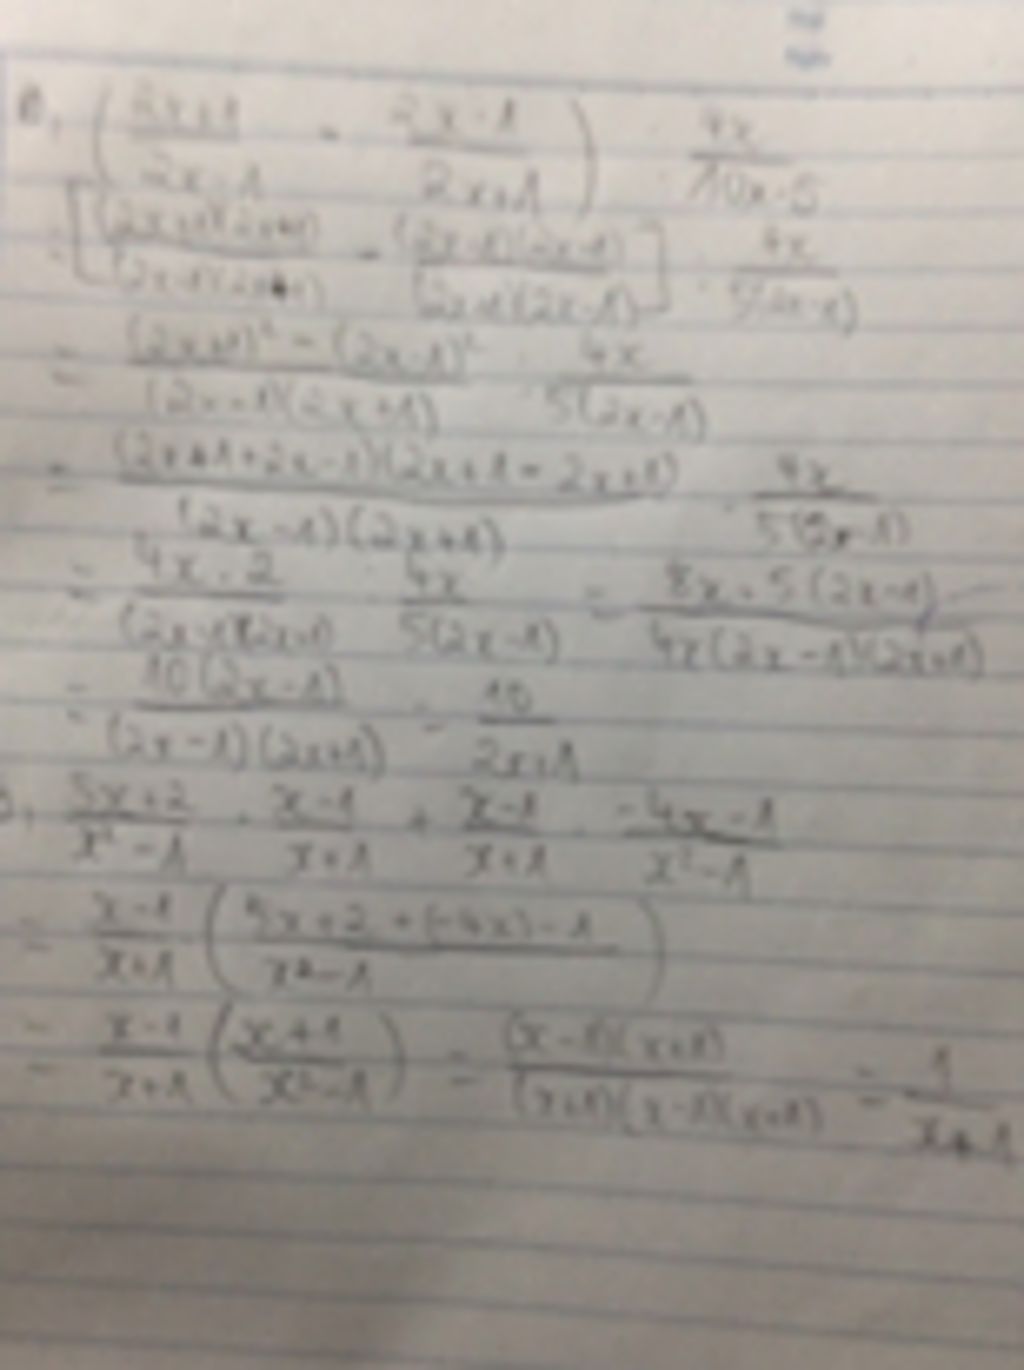 ( 2x+1 / 2x-1 - 2x-1 / 2x+1 ) : 4x / 10x-5
[ (2x+1)(2x+1) / (2x-1)(2x+1) - (2x-1)(2x-1) / (2x+1)(2x-1) ] : 4x / 5(2x-1)
= (2x+1)² - (2x-1)² / (2x-1)(2x+1) : 4x / 5(2x-1)
= (2x+1+2x-1)(2x+1-2x+1) / (2x-1)(2x+1) : 4x / 5(2x-1)
= 4x.2 / (2x-1)(2x+1) : 4x / 5(2x-1) = 8x.5(2x-1) / 4x(2x-1)(2x+1)
= 10(2x-1) / (2x-1)(2x+1) = 10 / 2x+1
5x+2 / x²-1 . x-1 / x+1 + x-1 / x+1 . -4x-1 / x²-1
= x-1 / x+1 ( 5x+2+(-4x)-1 / x²-1 )
= x-1 / x+1 ( x+1 / x²-1 ) = (x-1)(x+1) / (x+1)(x-1)(x+1) = 1 / x+1